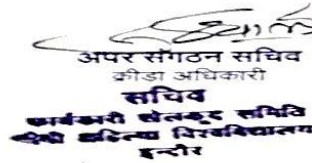 अपर संगठन सचिव
क्रीडा अधिकारी
सचिव
कार्यकारी खेलकूद समिति
अहिल्या विश्वविद्यालय
इन्दौर